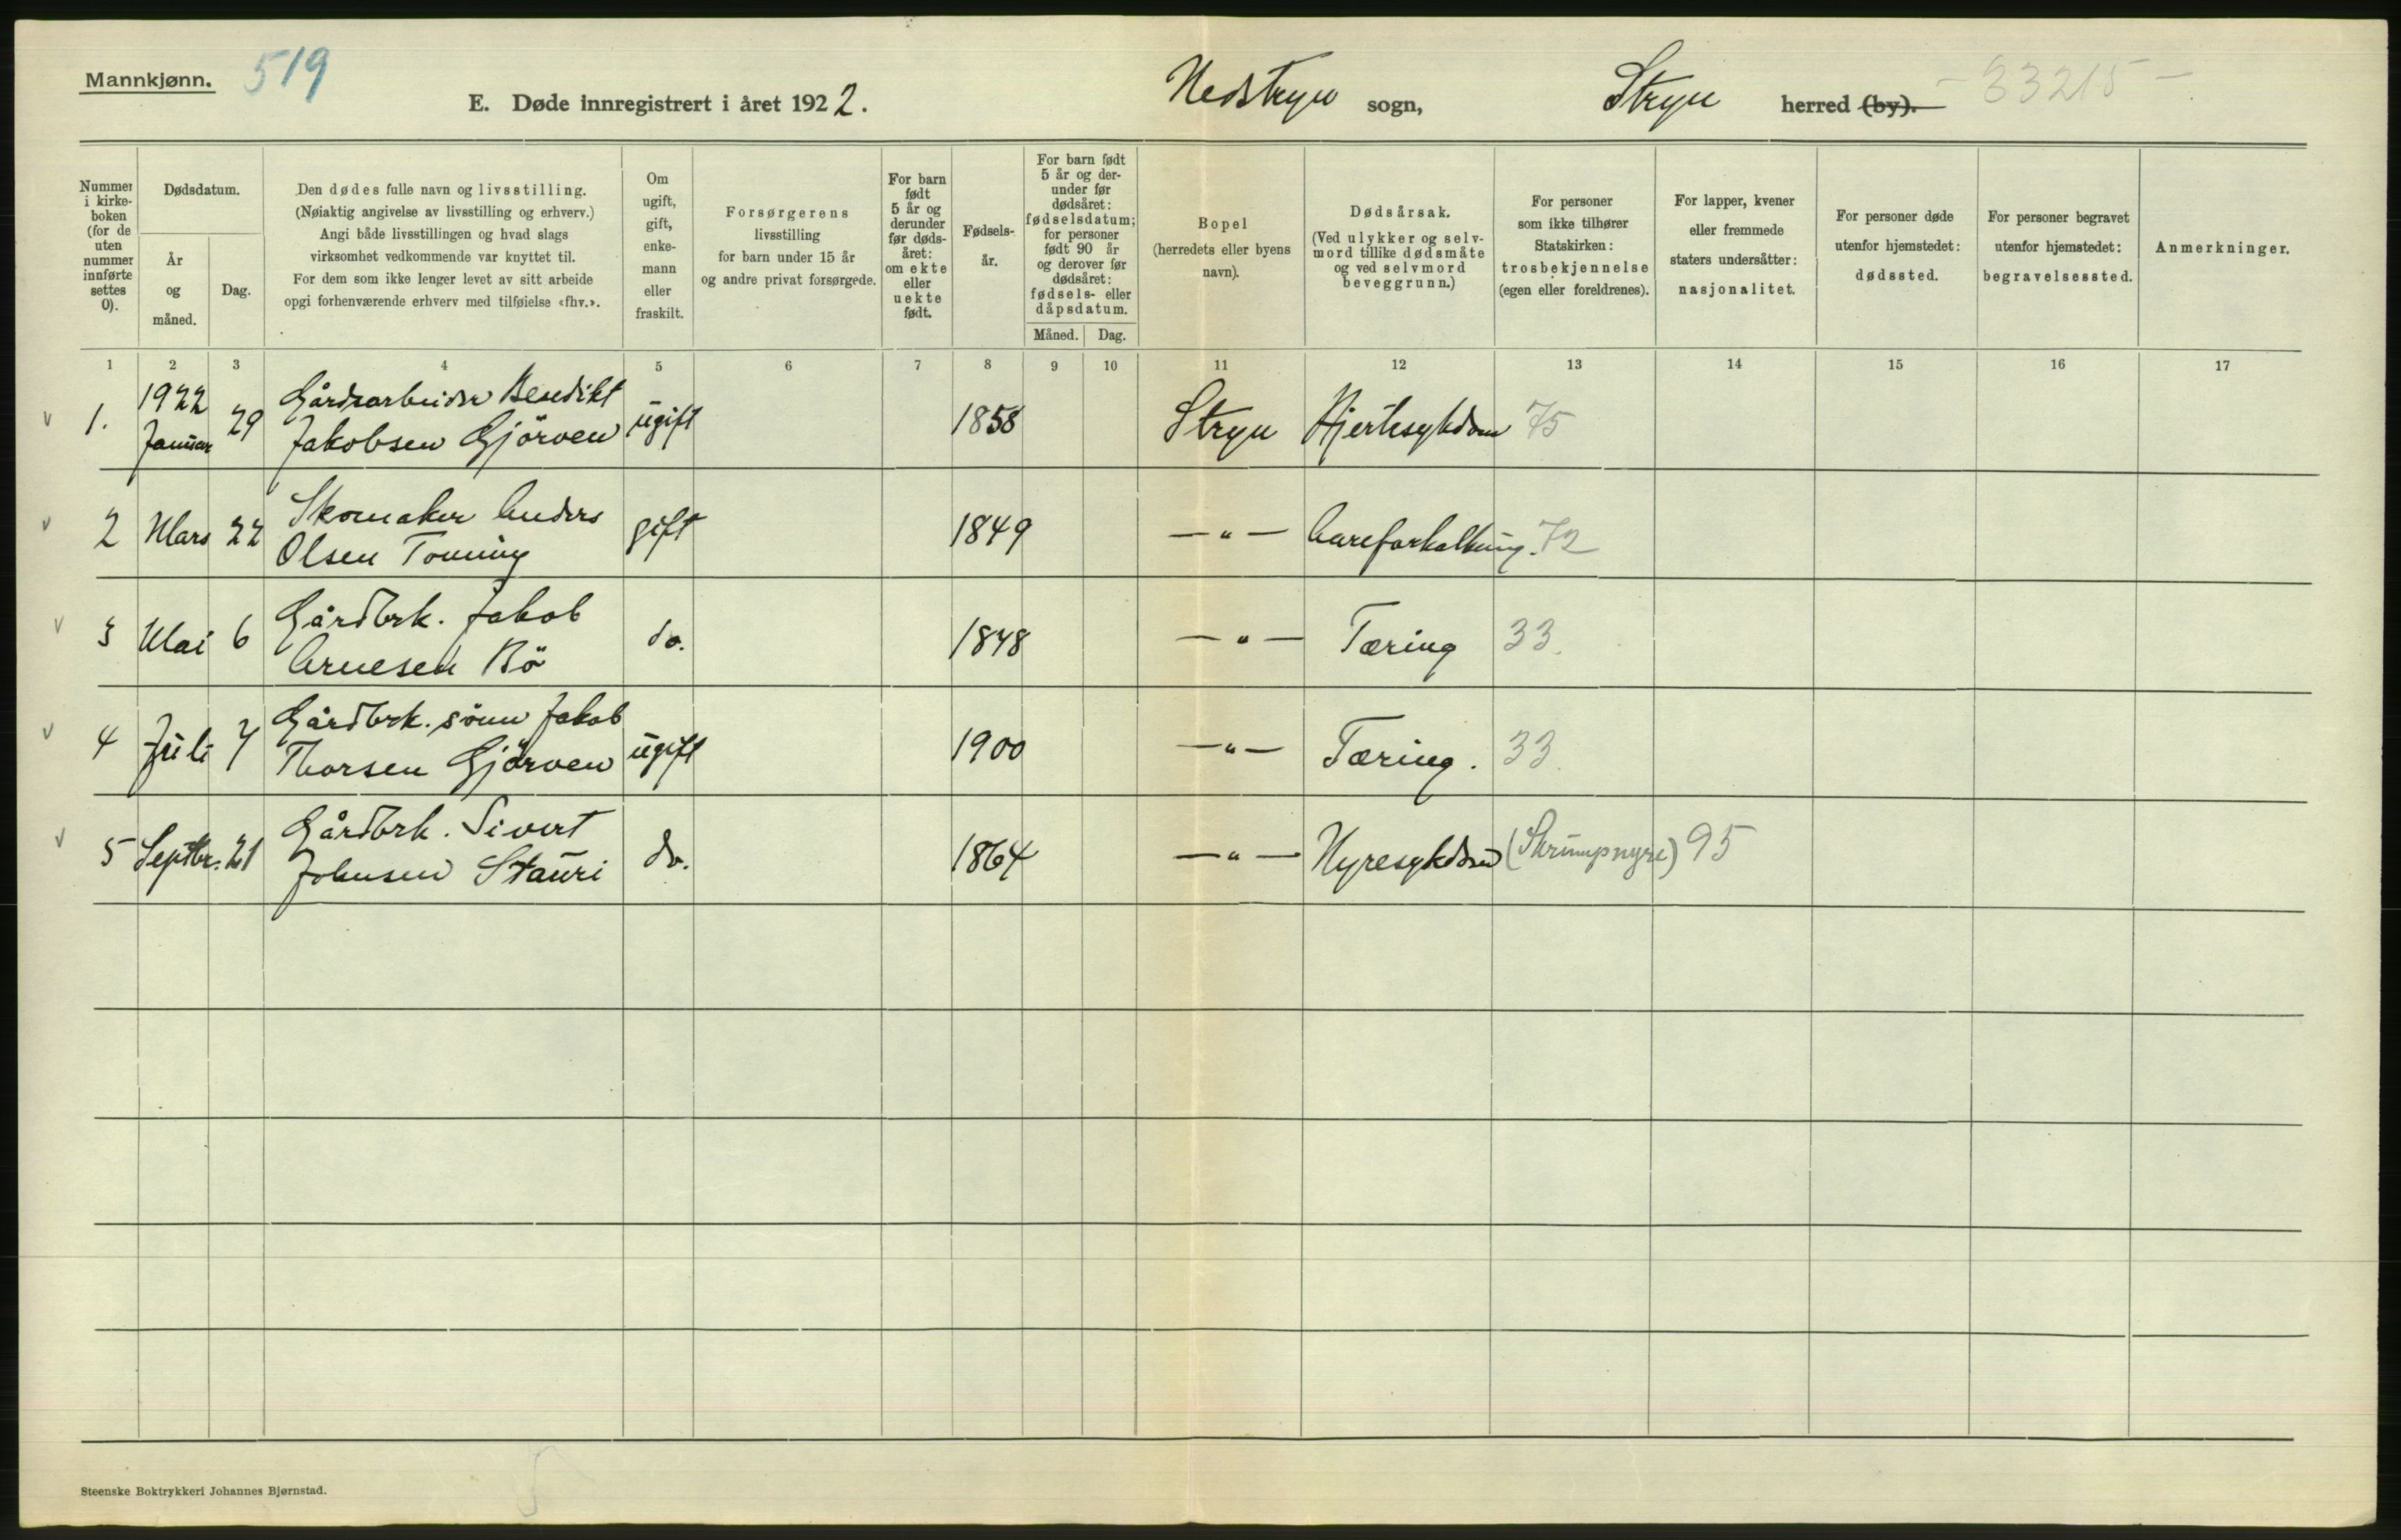 Mannkjønn. 519
E. Døde innregistrert i året 1922. Nedstryn sogn, Stryn herred (by). - 33215 -
Nummer i kirkeboken (for de uten nummer innførte settes 0).
Dødsdatum.
År og måned.
Dag.
Den dødes fulle navn og livsstilling.
(Nøiaktig angivelse av livsstilling og erhverv.)
Angi både livsstillingen og hvad slags
virksomhet vedkommende var knyttet til.
For dem som ikke lenger levet av sitt arbeide
opgi forhenværende erhverv med tilføielse «fhv.».
Om ugift, gift, enkemann eller fraskilt.
Forsørgerens
livsstilling
for barn under 15 år
og andre privat forsørgede.
For barn født 5 år og derunder før dødsåret: om ekte eller uekte født.
Fødselsår.
For barn født 5 år og derunder før dødsåret: fødselsdatum; for personer født 90 år og derover før dødsåret: fødsels- eller dåpsdatum.
Måned. Dag.
Bopel
(herredets eller byens
navn).
Dødsårsak.
(Ved ulykker og selvmord tillike dødsmåte og ved selvmord beveggrunn.)
For personer
som ikke tilhører
Statskirken:
trosbekjennelse
(egen eller foreldrenes).
For lapper, kvener
eller fremmede
staters undersåtter:
nasjonalitet.
For personer døde
utenfor hjemstedet:
dødssted.
For personer begravet
utenfor hjemstedet:
begravelsessted.
Anmerkninger.
1 2 3 4 5 6 7 8 9 10 11 12 13 14 15 16 17
v 1. 1922 Januar 29 Gårdsarbeider Benedikt
Jakobsen Gjörven ugift 1858 Stryn Hjertesykdom 75
v 2 Mars 22 Skomaker Anders
Olsen Tonning gift 1849 — " — Aareforkalkning. 72
v 3 Mai 6 Gårdbrk. Jakob
Arnesen Bö do. 1848 — " — Tæring 33.
v 4 Juli 7 Gårdbrk. sönn Jakob
Thorsen Gjörven ugift 1900 — " — Tæring. 33.
v 5 Septbr. 21 Gårdbrk. Sivert
Johnsen Stauri do. 1864 — " — Nyresykdom (Skrumpnyre) 95
5
Steenske Boktrykkeri Johannes Bjørnstad.